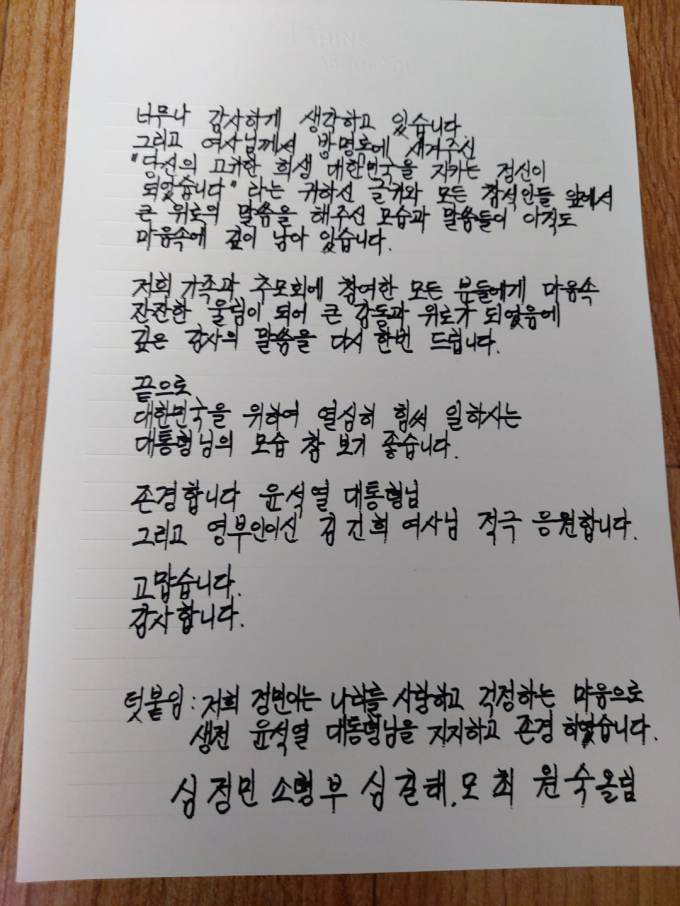 너무나 감사하게 생각하고 있습니다.
그리고 여사님께서 방명록에 새겨주신
"당신의 고귀한 희생 대한민국을 지키는 정신이
되었습니다" 라는 귀하신 글귀와 모든 참석인들 앞에서
큰 위로의 말씀을 해주신 모습과 말씀들이 아직도
마음속에 깊이 남아 있습니다.
저희 가족과 추모회에 참여한 모든 분들에게 마음속
잔잔한 울림이 되어 큰 감동과 위로가 되었음에
깊은 감사의 말씀을 다시 한번 드립니다.
끝으로
대한민국을 위하여 열심히 힘써 일하시는
대통령님의 모습 참 보기 좋습니다.
존경합니다 윤석열 대통령님
그리고 영부인이신 김건희 여사님 적극 응원합니다.
고맙습니다.
감사합니다.
텃붙임: 저희 정민이는 나라를 사랑하고 걱정하는 마음으로
생전 윤석열 대통령님을 지지하고 존경 하였습니다.
심정민 소령 부 심길태, 모 최원숙 올림